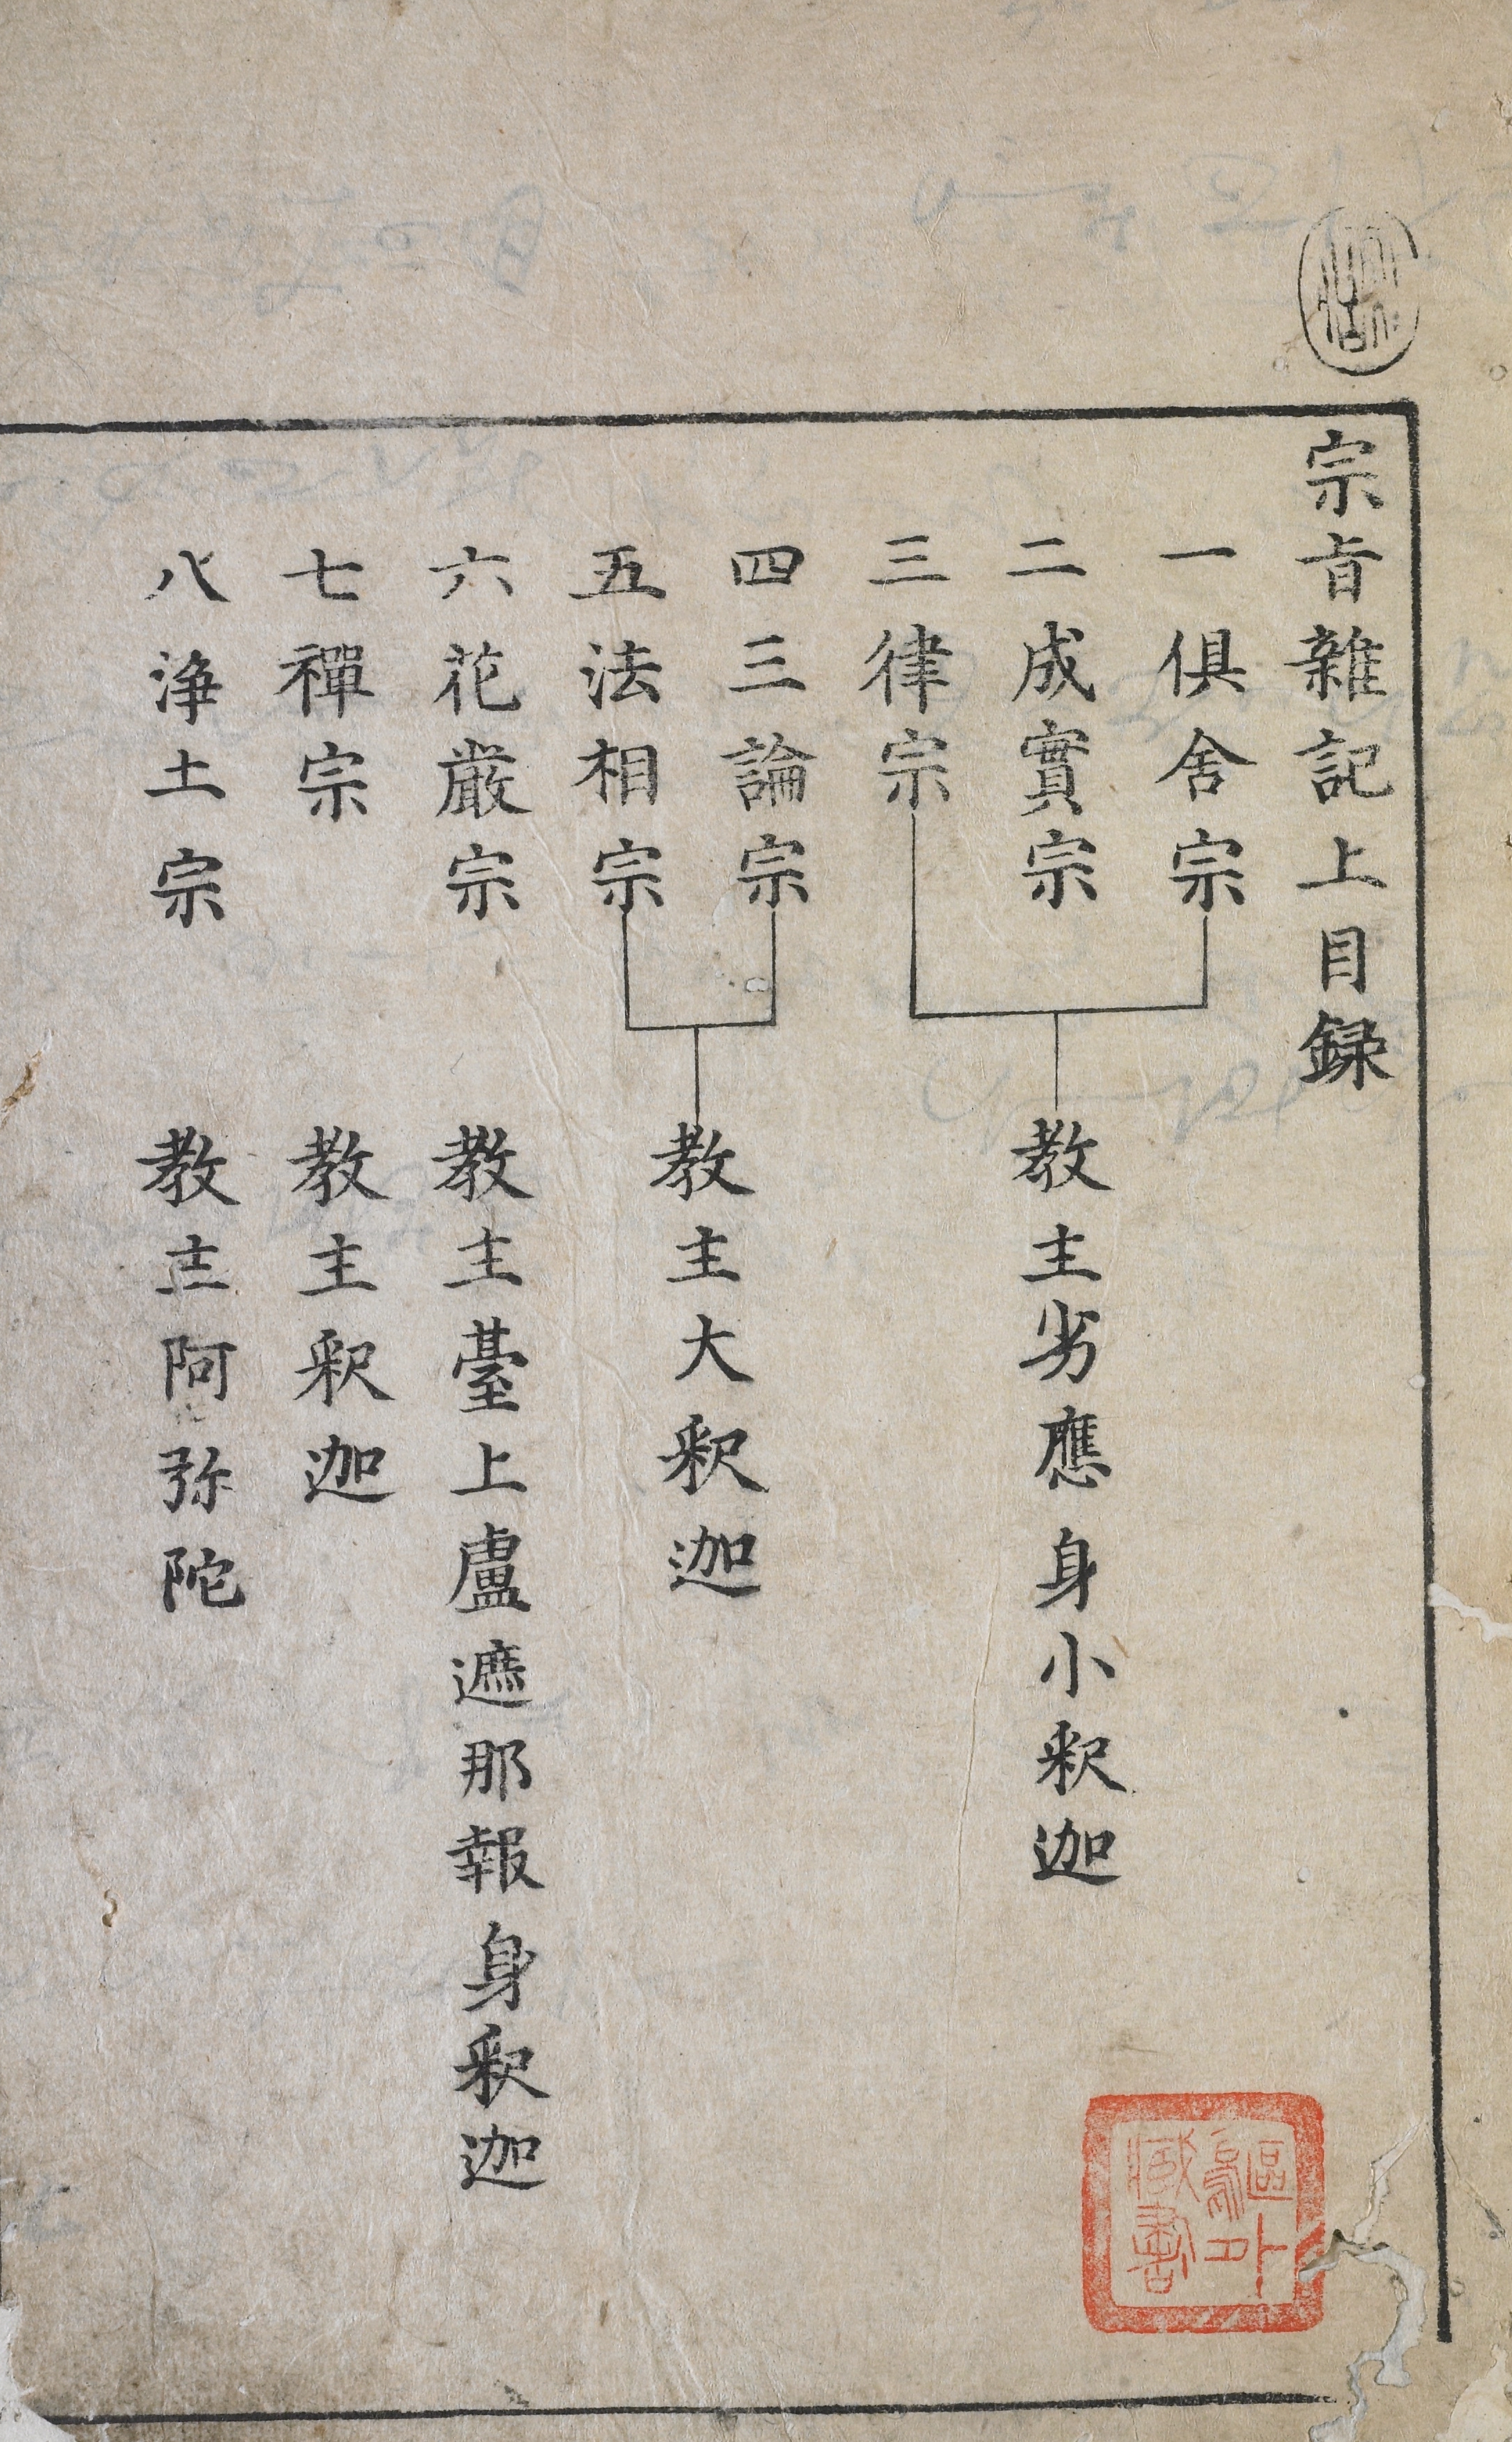 宗旨雜記上目録
一俱舍宗
二成實宗
教主劣應身小釈迦
三律宗
四三論宗
教主大釈迦
五法相宗
六花嚴宗
教主臺上盧遮那報身釈迦
七禪宗
教主釈迦
八淨土宗
教主阿弥陀